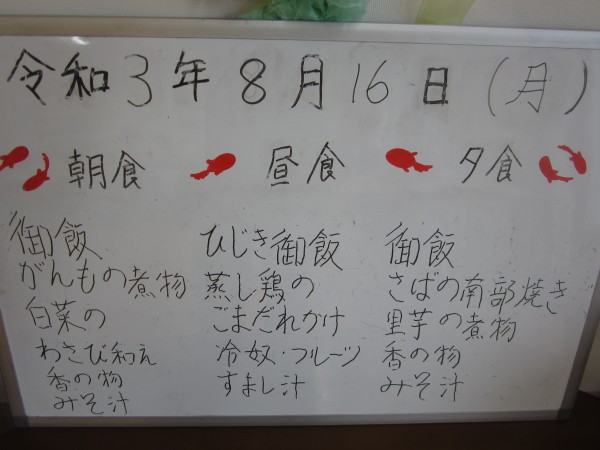 令和3年8月16日(月)
朝食
御飯
がんもの煮物
白菜の
わさび和え
香の物
みそ汁
昼食
ひじき御飯
蒸し鶏の
ごまだれかけ
冷奴・フルーツ
すまし汁
夕食
御飯
さばの南部焼き
里芋の煮物
香の物
みそ汁